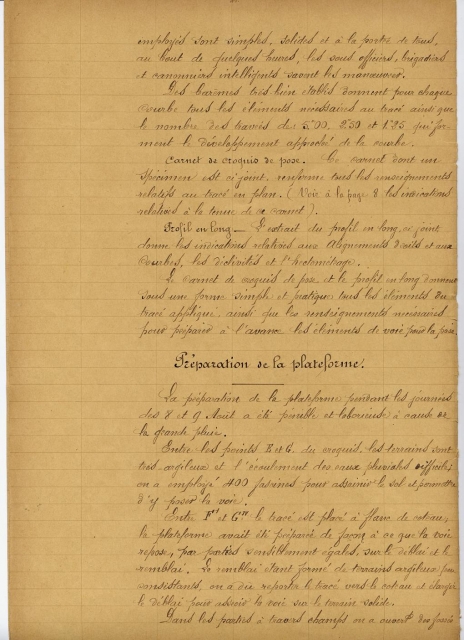 employés sont simples, solides et à la portée de tous,
au bout de quelques heures, les sous officiers, brigadiers
et canonniers intelligents savent les manœuvrer.
Des barèmes très bien établis donnent pour chaque
courbe tous les éléments nécessaires au tracé ainsi que
le nombre des travées des 5.00, 2.50 et 1.25 qui for-
ment le développement approché de la courbe.
Carnet de croquis de pose. Ce carnet dont un
spécimen est ci joint, renferme tous les renseignements
relatifs au tracé en plan. (Voir à la page 8 les indications
relatives à la tenue de ce carnet).
Profil en long._ L'extrait du profil en long, ci joint
donne les indications relatives aux alignements droits et aux
courbes, les déclivités et l'hectométrage.
Le carnet de croquis de pose et le profil en long donnent
sous une forme simple et pratique tous les éléments du
tracé appliqué, ainsi que les renseignements nécessaires
pour préparer à l'avance les éléments de voie pour la pose.
Préparation de la plateforme.
La préparation de la plateforme pendant les journées
des 8 et 9 Août a été pénible et laborieuse à cause de
la grande pluie.
Entre les points F et G, du croquis, les terrains sont
très argileux et l'écoulement des eaux pluviales difficile;
on a employé 400 fascines pour assainir le sol et permettre
d'y poser la voie.
Entre le tracé est placé à flanc de coteau,
la plateforme avait été préparée de façon à ce que la voie
repose, par parties sensiblement égales, sur le déblai et le
remblai. Le remblai étant formé de terrains argileux peu
consistants, on a dû reporter le tracé vers le coteau et élargir
le déblai pour asseoir la voie sur le terrain solide.
Dans les parties à travers champs on a ouvert des fossés